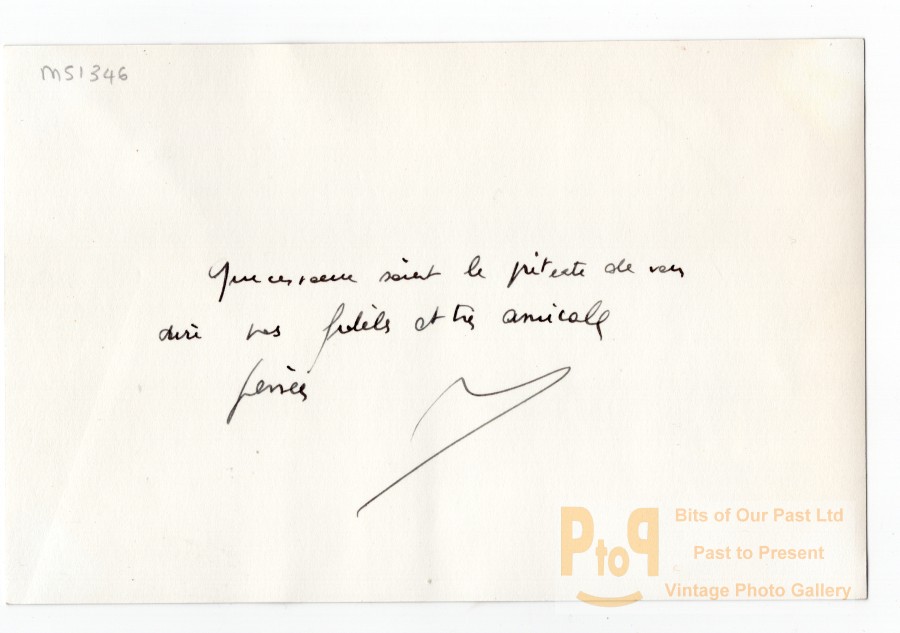 MS1346
Que ces voeux soient le prétexte de vous
dire mes fidèles et très amicales
pensées
PtoP
Bits of Our Past Ltd
Past to Present
Vintage Photo Gallery